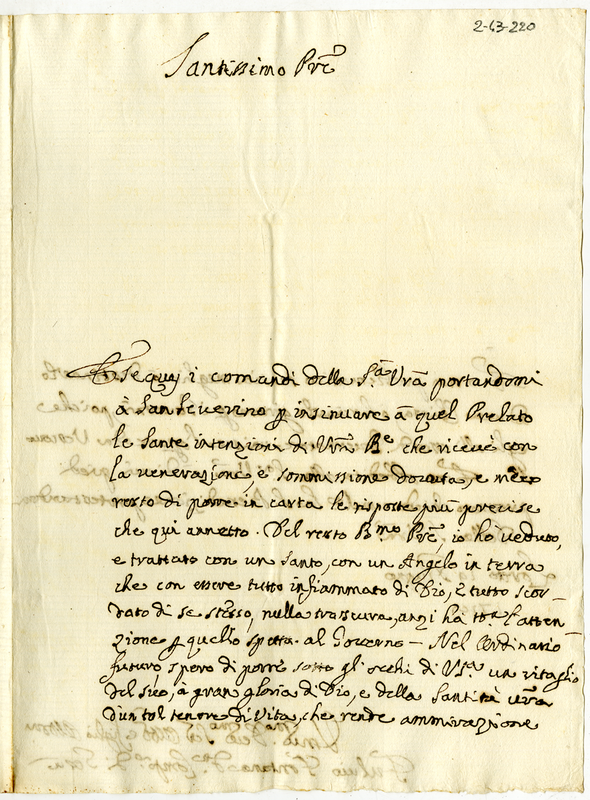 2-43-220
Santissimo Prē
Eseguij i comandi della S.tà Vrā portandomi
à Sanseverino p insinuare à quel Prelato
le sante intenzioni di Vrā B.e che ricevè con
la venerazione e sommissione dovuta, e
resto di porre in carta le risposte più precise
che qui annetto. Del resto B.mo Prē, io hò veduto,
e trattato con un Santo, con un Angelo in terra
che con essere tutto infiammato di Dio, e tutto scor-
dato di se stesso, nulla trascura, anzi hà tta l'atten-
zione p quello spetta al Governo - Nel Ordinario
futuro spero di porre sotto gli occhi di V.S.tà un
del suo, à gran gloria di Dio, e della Santità vrā
d'un tal tenore di Vita, che rende ammirazione